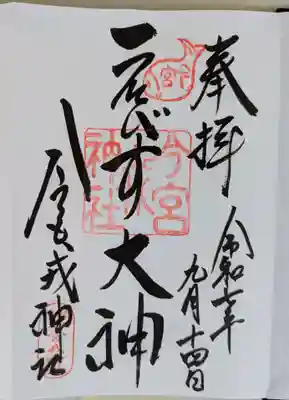 奉拝
令和七年
九月十四日
ゑびす大神
戎神社
今宮
戎
神社